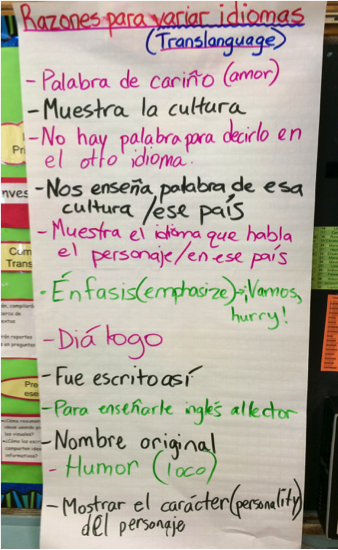 Razones para variar idiomas
(Translanguage)
- Palabra de cariño (amor)
- Muestra la cultura
- No hay palabra para decirlo en
el otro idioma.
- Nos enseña palabra de esa
cultura /ese país
- Muestra el idioma que habla
el personaje/en ese país
- Énfasis (emphasize) - ¡Vamos,
hurry!
- Diálogo
- Fue escrito así
- Para enseñarle inglés al lector
- Nombre original
- Humor (loco)
- Mostrar el carácter (personality)
del personaje
Pri
nves
Com
Trans
Pre
ese